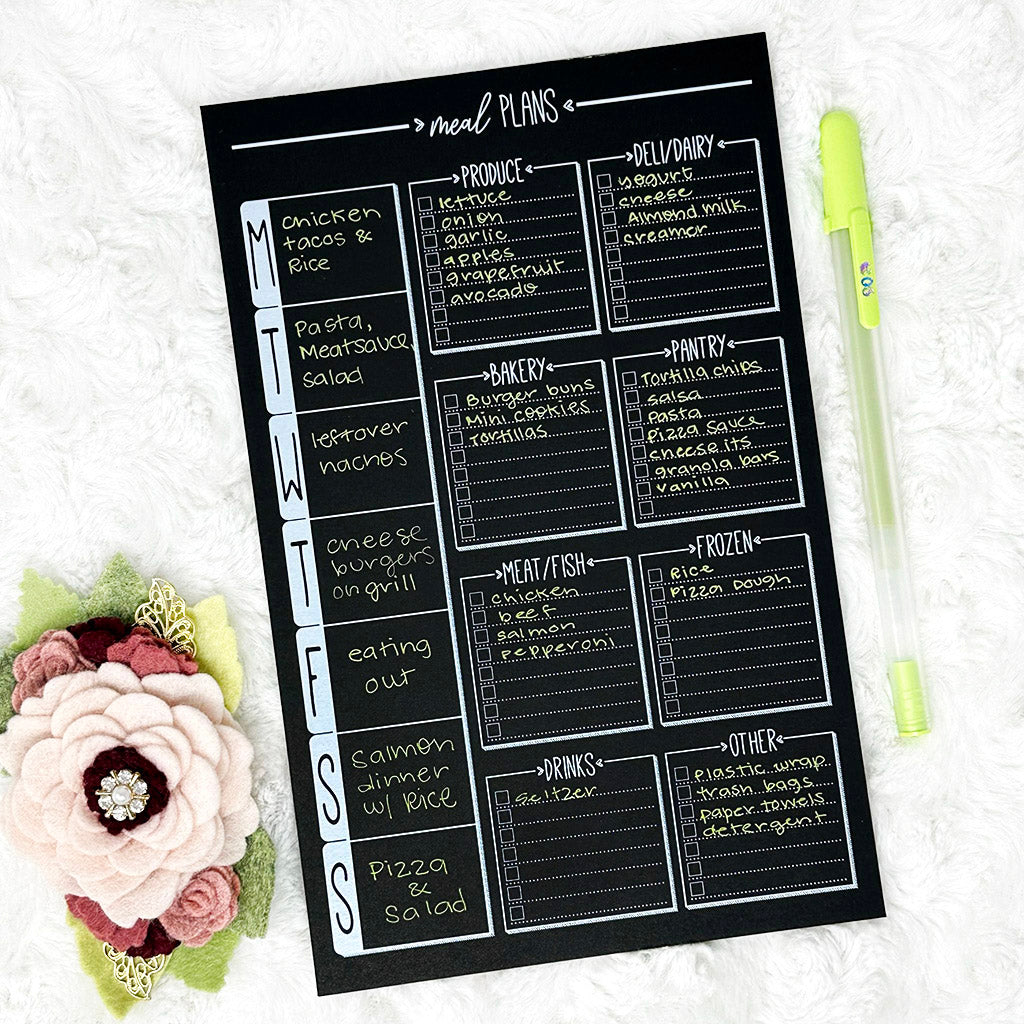 » meal PLANS «
M
Chicken
tacos &
Rice
T
Pasta,
Meatsauce,
salad
W
leftover
nachos
T
cheese
burgers
on grill
F
eating
out
S
Salmon
dinner
w/ Rice
S
Pizza
&
Salad
»PRODUCE«
lettuce
onion
garlic
apples
grapefruit
avocado
»DELI/DAIRY«
yogurt
cheese
Almond milk
creamer
»BAKERY«
Burger buns
Mini cookies
Tortillas
»PANTRY«
Tortilla chips
salsa
pasta
Pizza sauce
cheese its
granola bars
vanilla
»MEAT/FISH«
chicken
beef
salmon
pepperoni
»FROZEN«
Rice
Pizza Dough
»DRINKS«
Seltzer
»OTHER«
Plastic wrap
trash bags
Paper towels
detergent